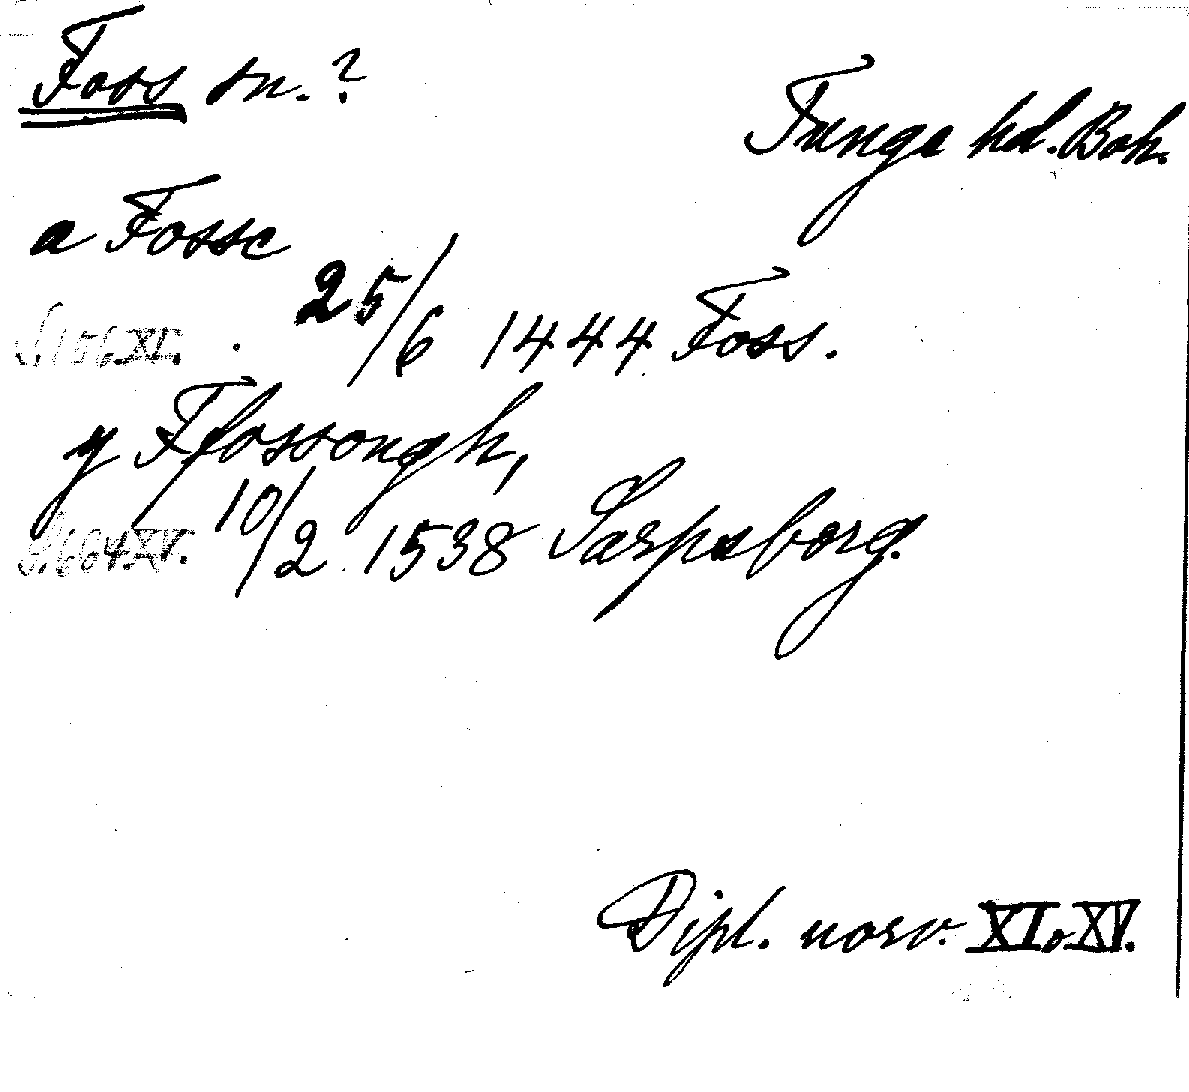 Foss sn.?
Tunge hd. Boh.
a Fosse
S. 156. XI. 25/6 1444 Foss.
y Ffossongh,
S. 664. XV. 10/2 1538 Sarpsborg.
Dipl. norv. XI o XV.